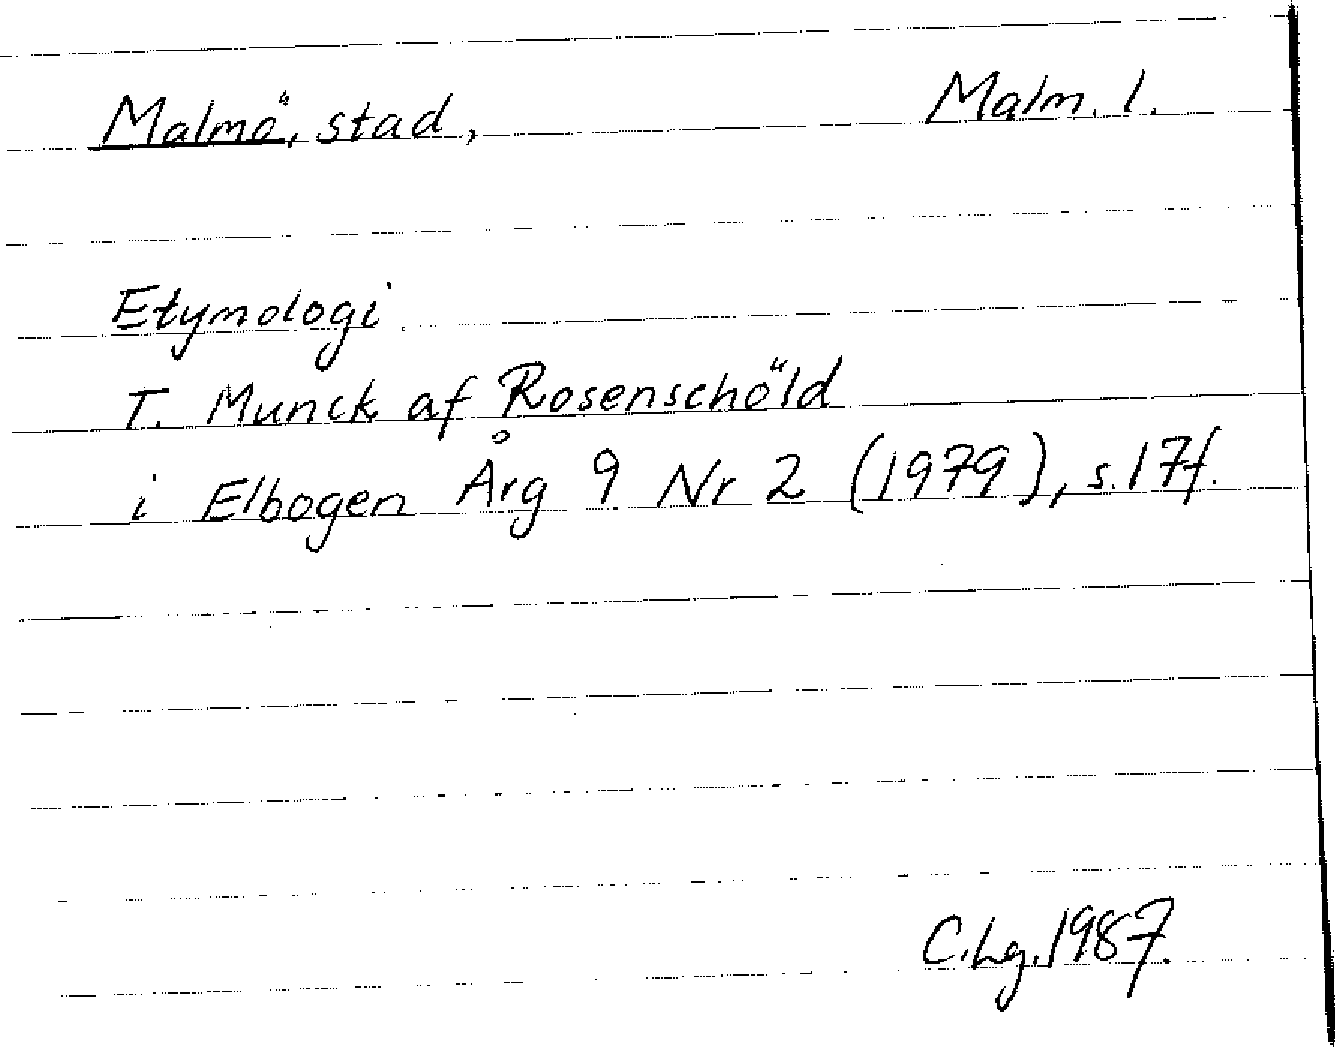 Malmö, stad, Malm. l.
Etymologi
T. Munck af Rosenschöld
i Elbogen Årg 9 Nr 2 (1979), s. 17f.
C. Lg. 1987.